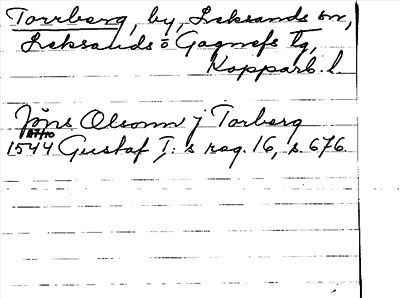 Torrberg, by, Leksands sn,
Leksands o Gagnefs tg,
Kopparb. l.
Jöns Olsonn j Torberg
27/10
1544 Gustaf I:s reg. 16, s. 676.